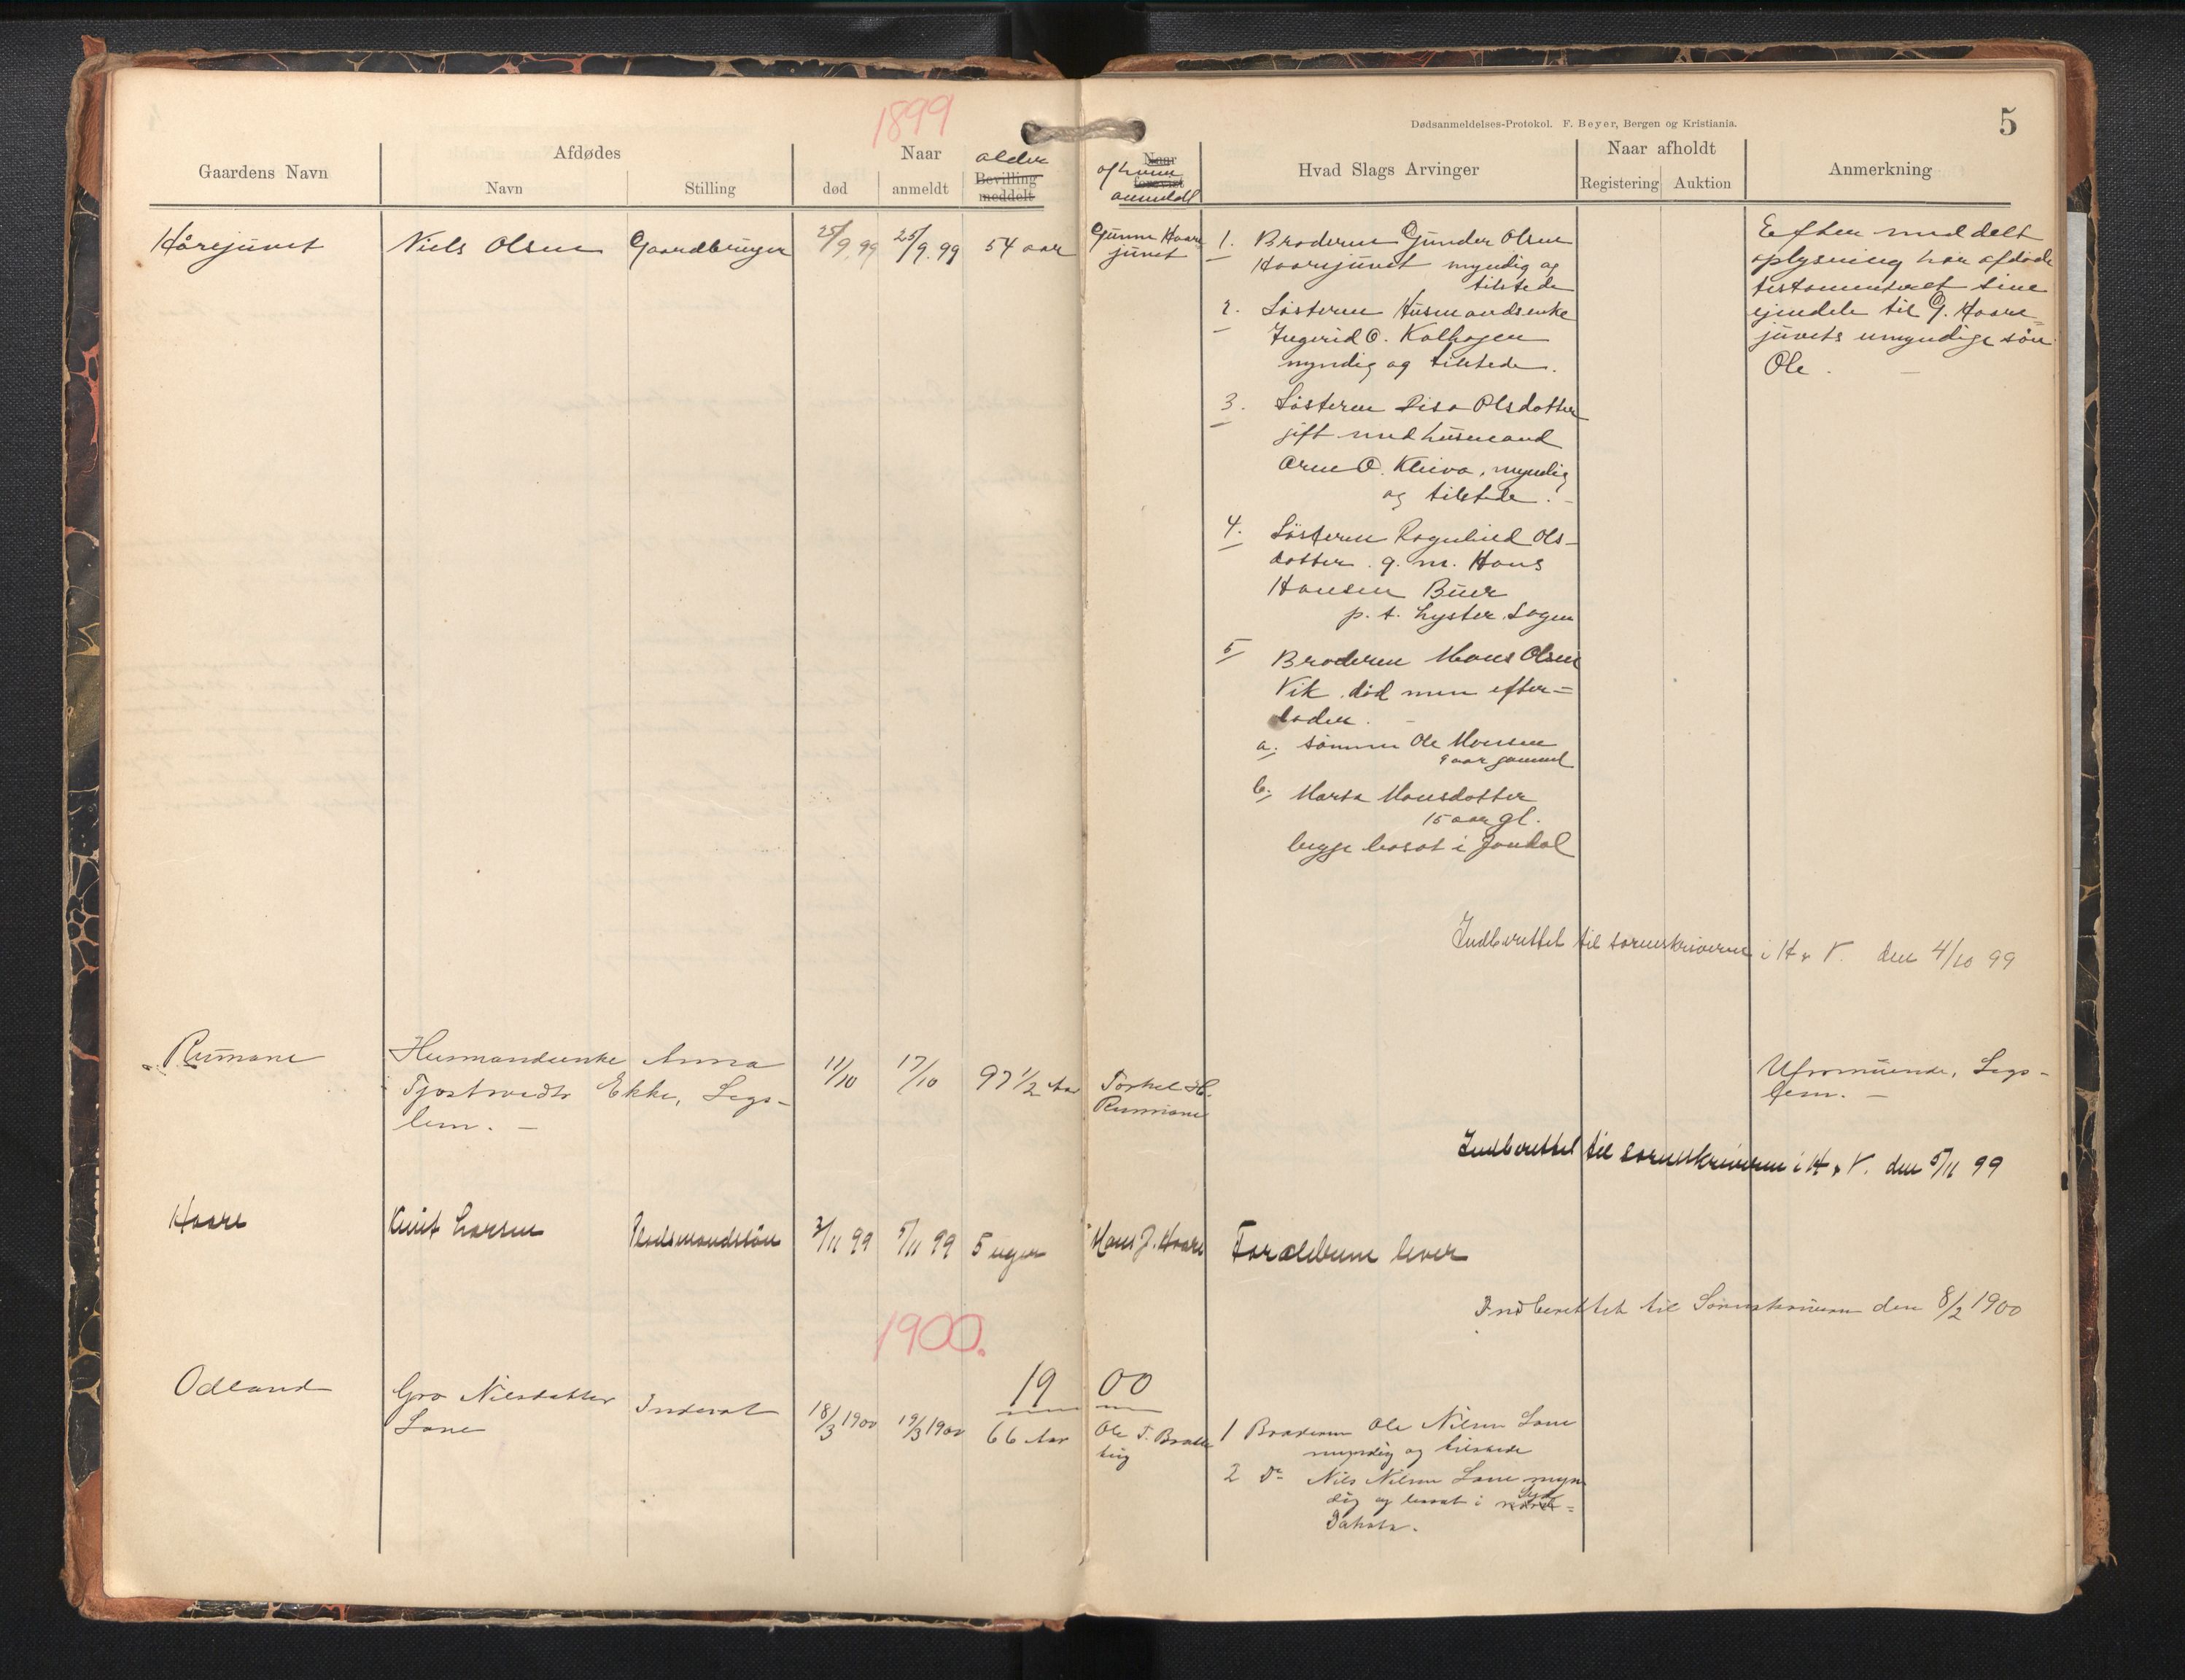 1899
Dødsanmeldelses-Protokol. F. Beyer, Bergen og Kristiania.
5
Gaardens Navn
Afdødes
Navn
Stilling
Naar
død
anmeldt
alder
Bevilling
meddelt
Naar
af hvem
forevist
anmeldt
Hvad Slags Arvinger
Naar afholdt
Registering
Auktion
Anmerkning
Hårejuvet
Niels Olsen
Gaardbruger
25/9.99
25/9.99
54 aar
Gunne Haare
juvet
1. Broderen Gunder Olsen
Haarejuvet myndig og
tilstede
2. Søsteren Husmandsenke
Ingerid O. Kolhagen
myndig og tilstede.
3. Søsteren Lisa Olsdotter
gift med husmand
Arne O. Kleiva, myndig
og tilstede. -
4. Søsteren Ragnhild Ols-
dotter . g. m. Hans
Hansen Buer
p. t. Lyster Sogn
5 Broderen Mons Olsen
Vik død men efter=
lader . -
a. sønnen Ole Monsen
9 aar gammel
b. Marta Monsdotter
15 aar gl.
begge bosat i Jondal
Efter meddelt
oplysning har afdøde
testamenteret sine
ejendele til G. Haare=
juvets umyndige søn
Ole . -
Indberettet til sorenskriveren i H & V. den 4/10 99
Rumane
Husmandsenke Anna
Tjostveds Ekke, Legs-
lem. -
11/10
17/10
97 1/2 Aar
Torkel H.
Rumane
Uformuende, Legs-
lem. -
Indberettet til sorenskriveren i H & V. den 5/11 99
Haare
Knut Larsen
Pladsmandssøn
3/11 99
5/11 99
5 uger
Hans J. Haare
Forældrene lever
Indberettet til Sorenskriveren den 8/2 1900
1900.
19 00
Odland
Gro Nilsdatter
Lone
Inderst
18/3 1900
19/3 1900
66 Aar
Ole T. Bratte
teig
1 Broderen Ole Nilsen Lone
myndig og tilstede
2 Do Nils Nilsen Lone myn
dig og bosat i Nord Syd =
Dakota.